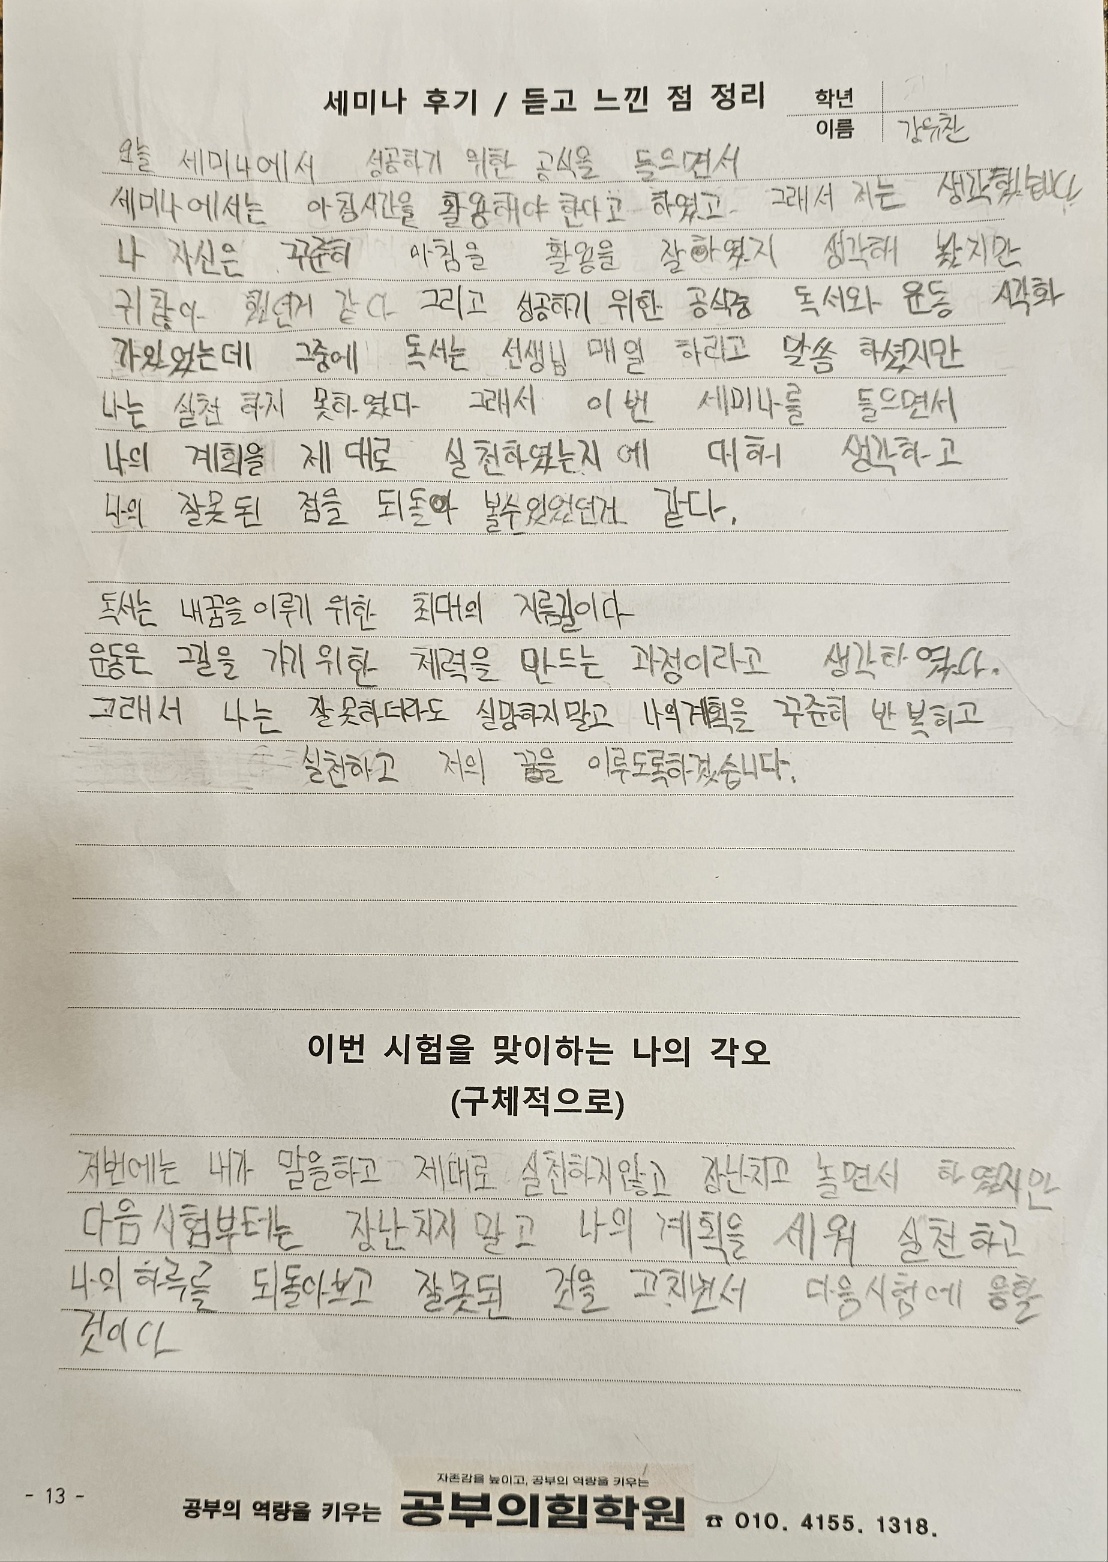 세미나 후기 / 듣고 느낀 점 정리
학년
이름 강유찬
오늘 세미나에서 성공하기 위한 공식을 들으면서
세미나에서는 아침시간을 활용해야 한다고 하였고 그래서 저는 생각했습니다
나 자신은 꾸준히 아침을 활용을 잘하였지 생각해 봤지만
귀찮아 했던거 같다 그리고 성공하기 위한 공식중 독서와 운동 시각화
가있었는데 그중에 독서는 선생님 매일 하라고 말씀 하셨지만
나는 실천 하지 못하였다 그래서 이번 세미나를 들으면서
나의 계획을 제대로 실천하였는지에 대해 생각하고
나의 잘못된 점을 되돌아 볼수있었던거 같다.
독서는 내꿈을이루기 위한 최대의 지름길이다
운동은 그길을 가기위한 체력을 만드는 과정이라고 생각하였다.
그래서 나는 잘못하더라도 실망하지말고 나의계획을 꾸준히 반복하고
실천하고 저의 꿈을 이루도록하겠습니다.
이번 시험을 맞이하는 나의 각오
(구체적으로)
저번에는 내가 말을하고 제대로 실천하지않고 장난치고 놀면서 하였지만
다음시험부터는 장난치지 말고 나의 계획을 세워 실천하고
나의 하루를 되돌아보고 잘못된 것을 고치면서 다음시험에 응할
것이다
- 13 -
자존감을 높이고, 공부의 역량을 키우는
공부의 역량을 키우는 공부의힘학원 ☎ 010. 4155. 1318.